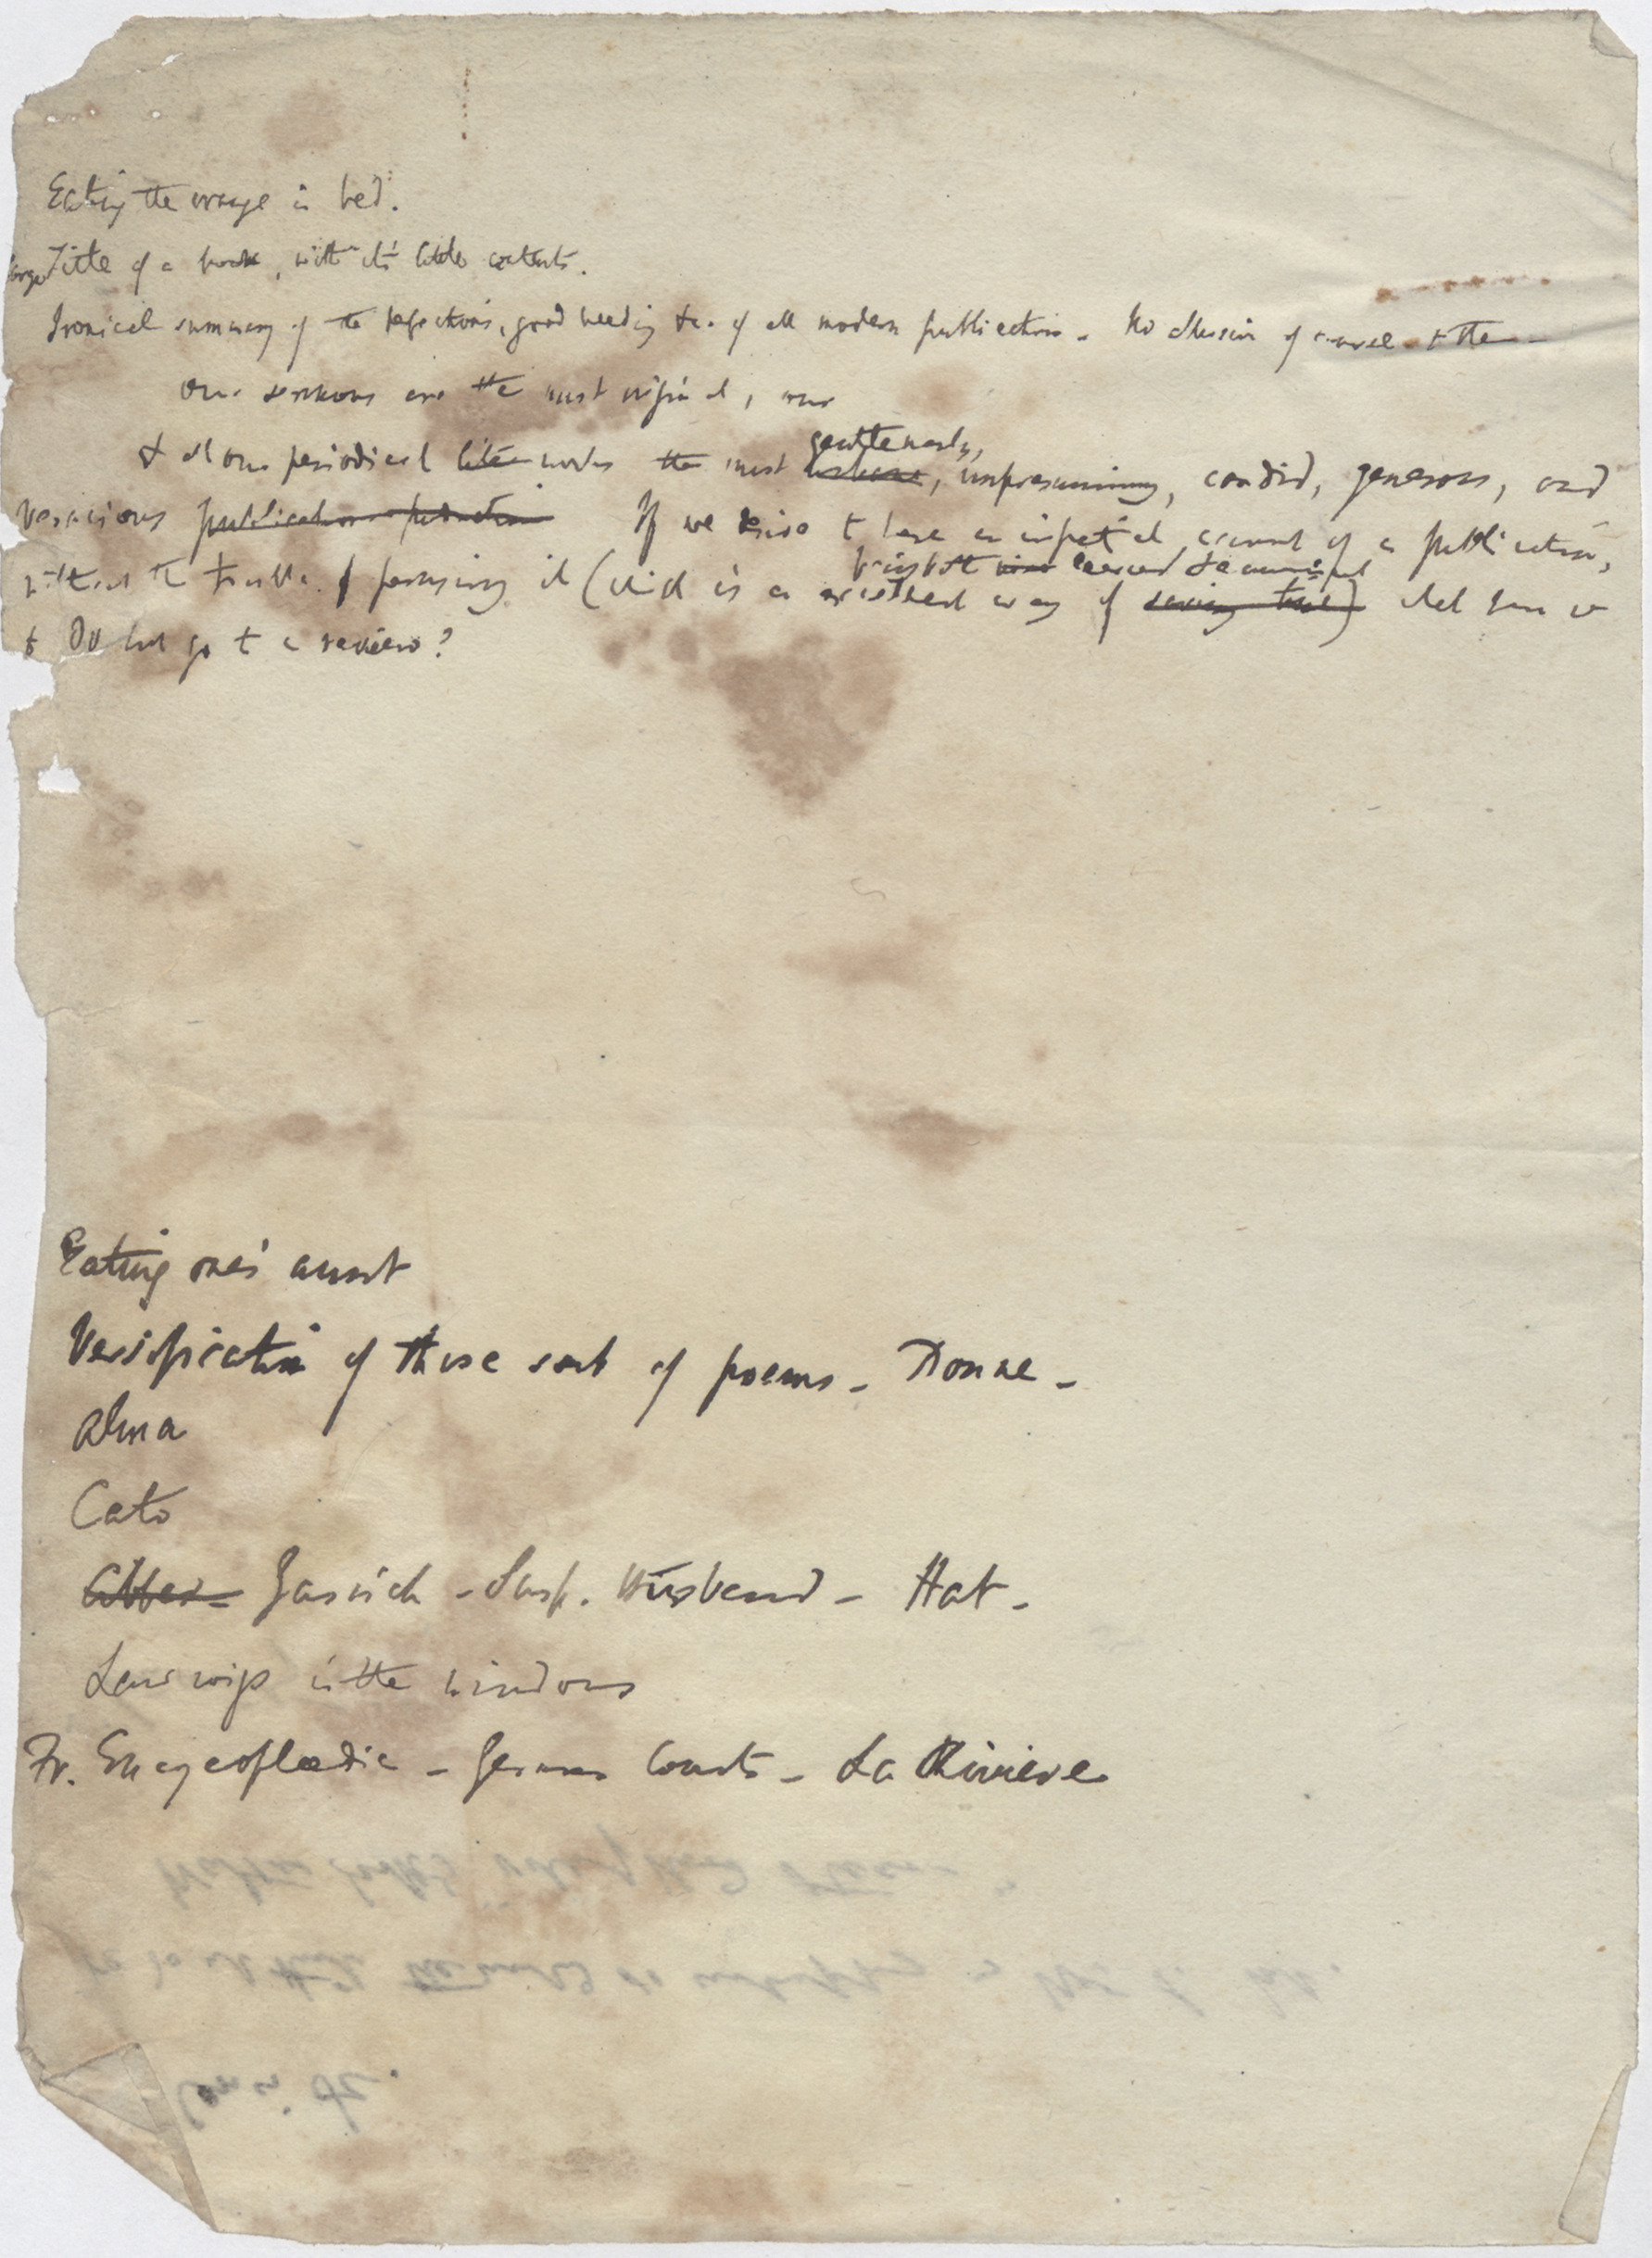 Eating the orange in bed.
large Title of a book, with it's little contents.
Ironical summary of the perfections, good breeding &c. of all modern publications. No allusion of course to the
our sermons are the most original, our
gentlemanly,
& all our periodical works the most , unpresuming, candid, generous, and
veracious publications If we desire to have an impartial account of a publication,
being both learned &
without the trouble of perusing it (which is an excellent way of saving time) what have we
to do but go to a review?
Eating one's aunt
Versification of those sort of poems - Donne -
Alma
Cato
Cibber - Garrick - Susp. Husband - Hat -
Law wigs in the windows
Fr. Encyclopædia - German Courts - La Riviere